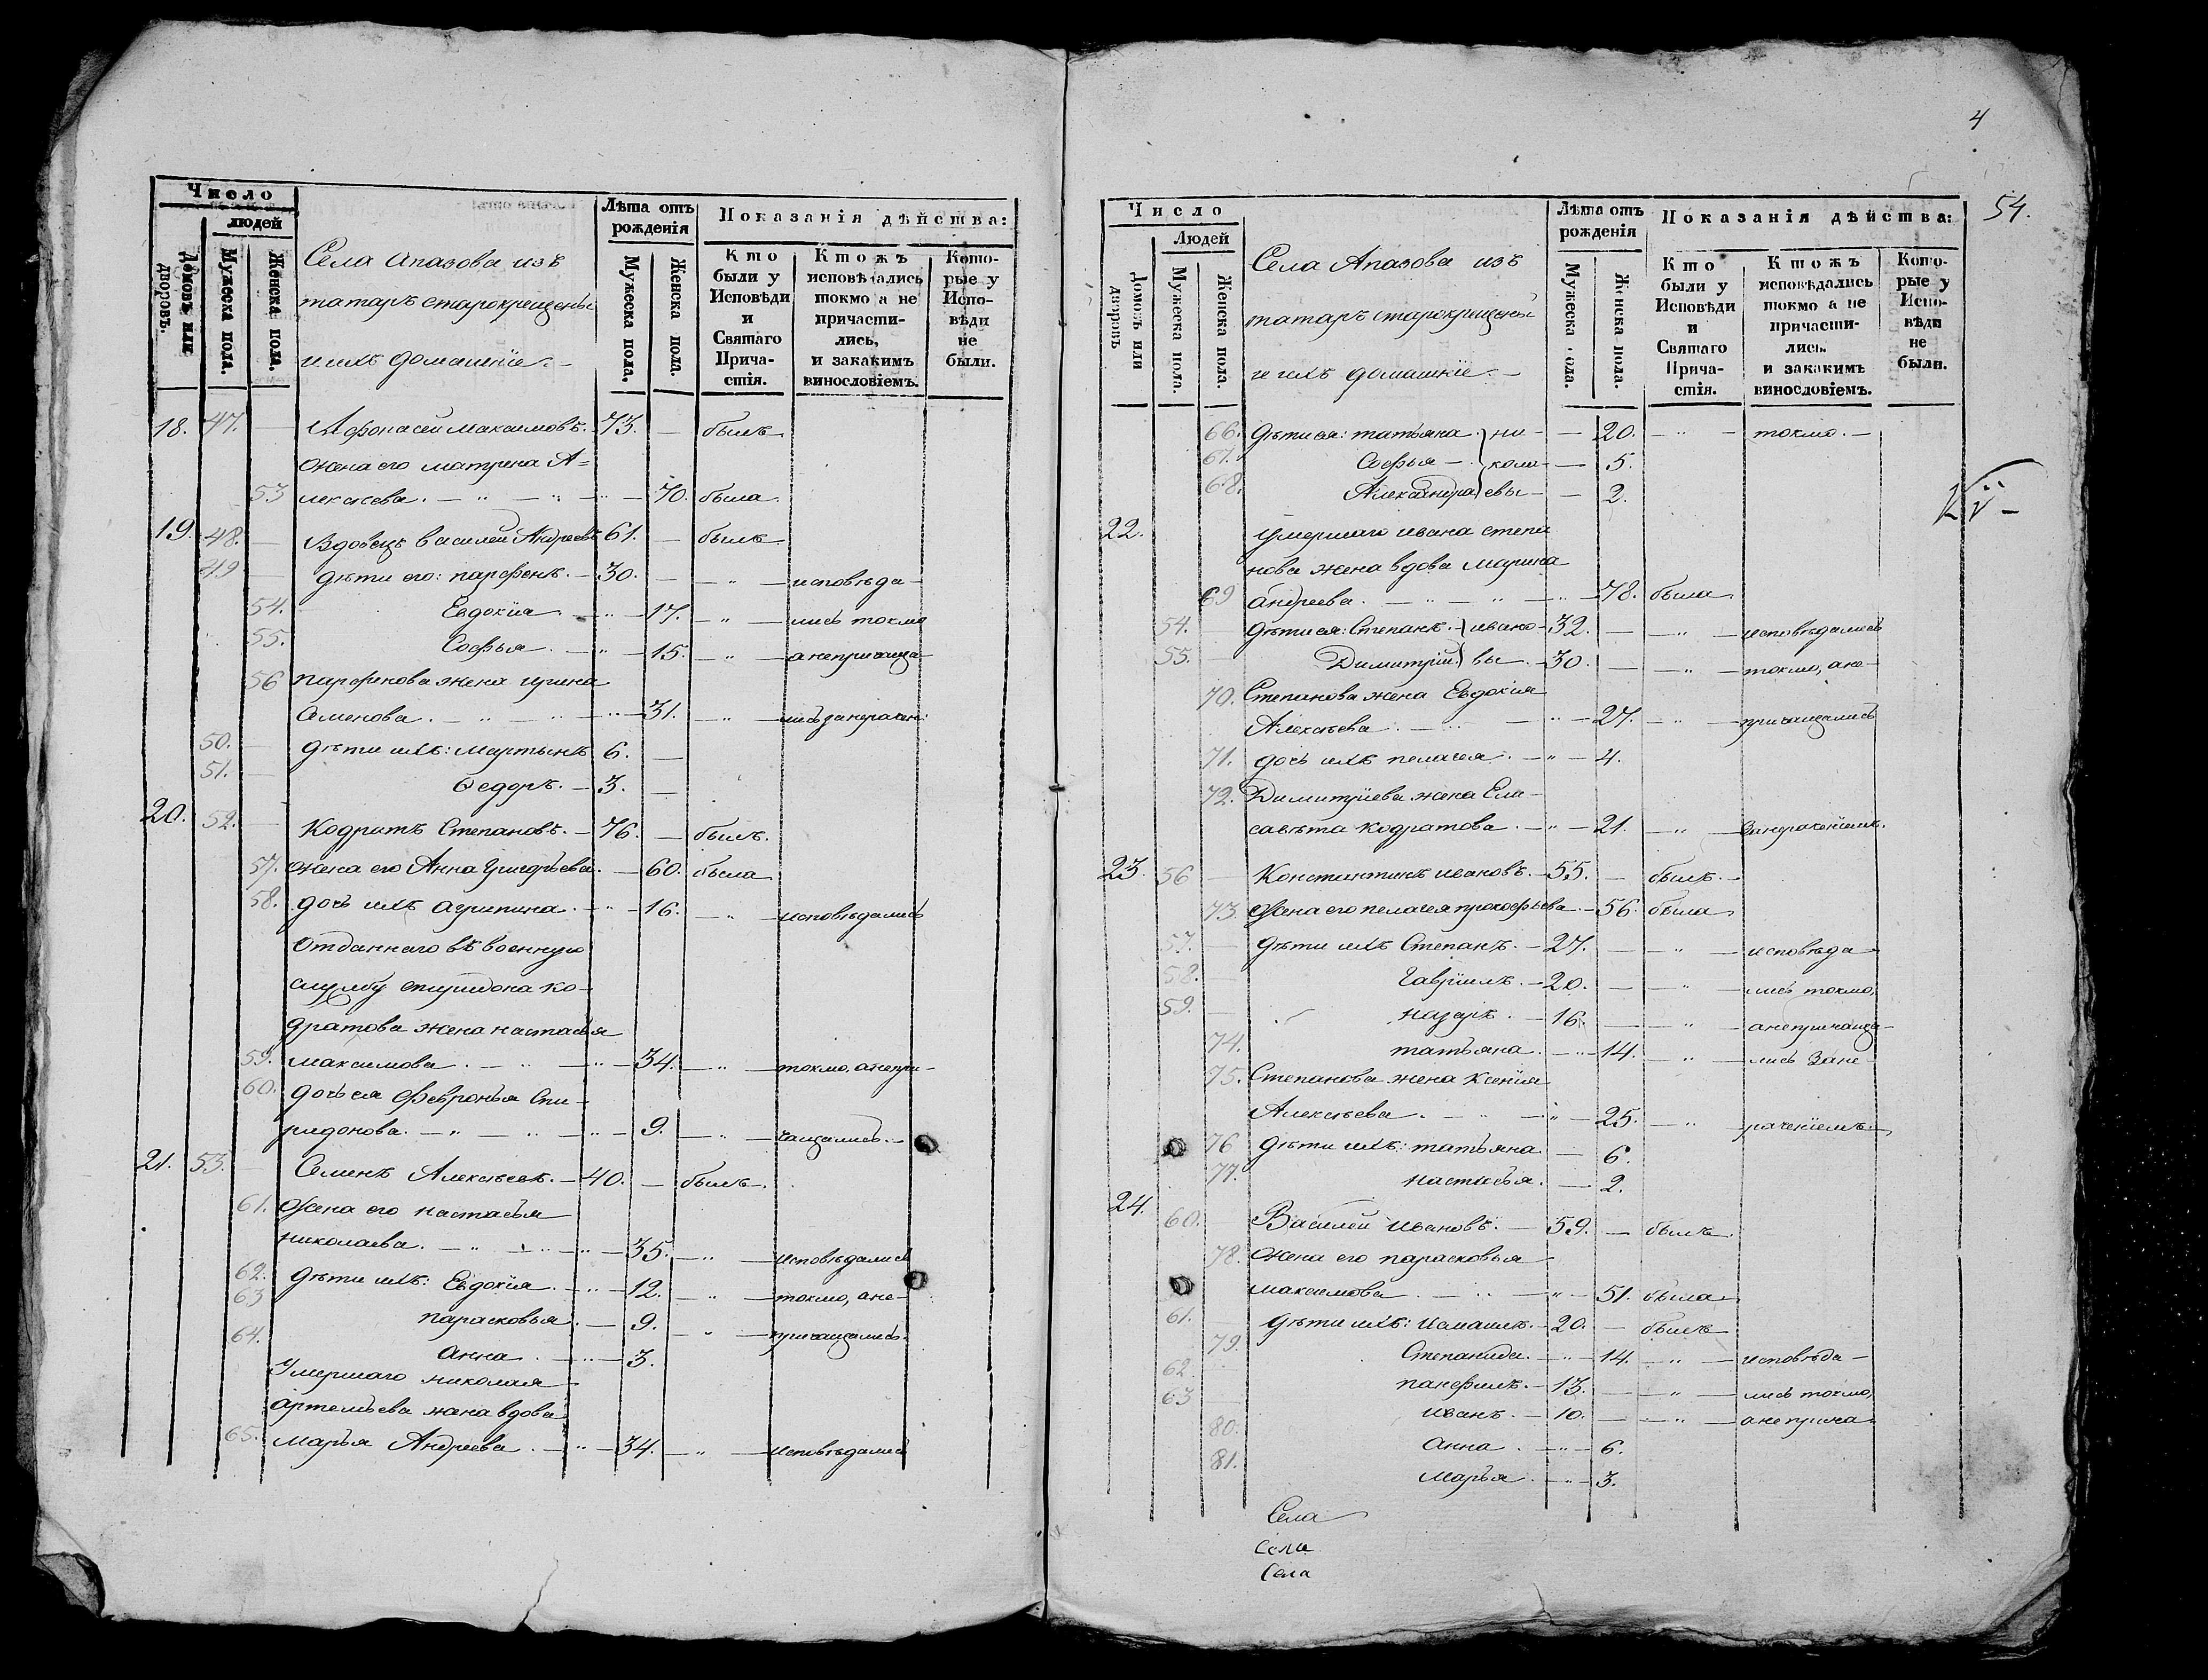 4
54.
Число
людей
Домовъ или дворовъ.
Мужеска пола.
Женска пола.
Села Апазова изъ
татаръ старокрещены
и ихъ домашніе. —
Лѣта отъ рожденія
Мужеска пола.
Женска пола.
Показанія дѣйства:
Кто были у Исповѣди и Святаго Причастія.
Ктожъ исповѣдались токмо а не причастились, и закакимъ винословіемъ.
Которые у Исповѣди не были.
18. 47. — Афонасей Максимовъ. — 73. — былъ
жена его матрена А=
53 лексеева. — " — " — " — 70. была
19. 48. — Вдовецъ василей Андреевъ 61. — былъ
49 — дѣти его: парфенъ. — 30. — — " — исповѣда-
54. Евдокія — " — 17. — " — лись токмо
55. Софья. — " — 15. — " — анепричаща-
56 парфенова жена ирина
Семенова. — " — " — " — 31. — " — лись занерачен:
50. — дѣти ихъ: мартынъ 6. —
51. — Федоръ. — 3. —
20. 52. — Кодратъ Степановъ. — 76. — былъ.
57. жена его Анна Григорьева. — 60. была
58. дочь ихъ агрипина. — " — 16. — " — исповѣдались
Отданнаго въ военную
службу спиридона ко-
дратова жена настасья
59. максимова. — " — " — 34. — " — токмо, анепри-
60. дочь ея Февронья Спи-
ридонова. — " — " — " — 9. — " — чащались. —
21. 53. — Семенъ Алексѣевъ. — 40. — былъ.
61. Жена его настасья
николаева. — " — " — " — 35. — " — исповѣдались
62. дѣти ихъ: Евдокія. — " — 12. — " — токмо, ане-
63 парасковья. — 9. — " — причащались.
64. Анна. — " — 3.
Умершаго николая
Артемьева жена вдова
65. марья Андреева. — " — 34. — " — исповѣдались
Число
Людей
Домовъ или дворовъ
Мужеска пола.
Женска пола.
Села Апазова изъ
татаръ старокрещены
и ихъ домашніе. —
Лѣта отъ рожденія
Мужеска пола.
Женска пола.
Показанія дѣйства:
Кто были у Исповѣди и Святаго Причастія.
Ктожъ исповѣдались токмо а не причастились. и закакимъ винословіемъ.
Которые у Исповѣди не были.
66. дѣти ея: татьяна } ни- — 20. — " — токмо. —
67. Софья — } кола- — 5.
68. Александра } евы — — 2.
22. умершаго ивана степа
нова жена вдова марина
69 андреева. — " — " — " — 78. была
54. — дѣти ея: Степанъ. } ивано- 32. — — " — исповѣдались
55. — Димитрій } вы. — 30. — — " — токмо, ане-
70. Степанова жена Евдокія
Алексѣева. — " — " — 27. — " — причащались
71. дочь ихъ пелагея. — " — 4.
72. Димитріева жена Ели-
савѣта кодратова. — " — 21. — " — занераченіемъ.
23. 56 — Константинъ ивановъ. — 55. — былъ. —
73. Жена его пелагея прокофьева. — 56. была
57. — дѣти ихъ Степанъ. — 27. — — " — исповѣда-
58. — Гавріилъ. — 20. — — " — лись токмо,
59. — назаръ. — 16. — — " — анепричаща-
74. татьяна. — " — 14. — " — лись Зане-
75. Степанова жена Ксенія
Алексѣева. — " — " — 25. — " — раченіемъ.
76 дѣти ихъ: татьяна — 6.
77. настасья. — 2.
24. 60. — Василей ивановъ. — 59. — былъ.
78. жена его парасковья
максимова. — " — " — 51. была
61. — дѣти ихъ: — 20. — былъ
79. Степанида. — " — 14. — " — исповѣда-
62. — панфилъ. — 13. — — " — лись токмо,
63 — иванъ. — 10. — — " — анеприча-
80. анна. — " — 6.
81. марья. — " — 3.
Села
Села
Села